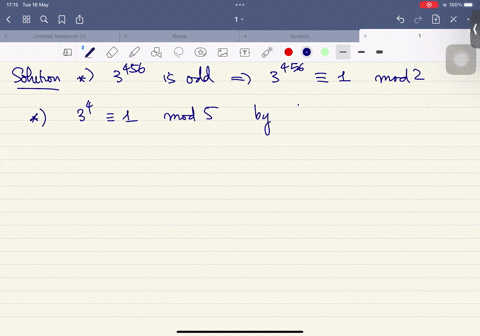 17:15 Tue 16 May
100%
1
Untitled Notebook (1) Home Scratch 1
Solution *) 3^456 is odd ⟹ 3^456 ≡ 1 mod 2
*) 3^4 ≡ 1 mod 5 by